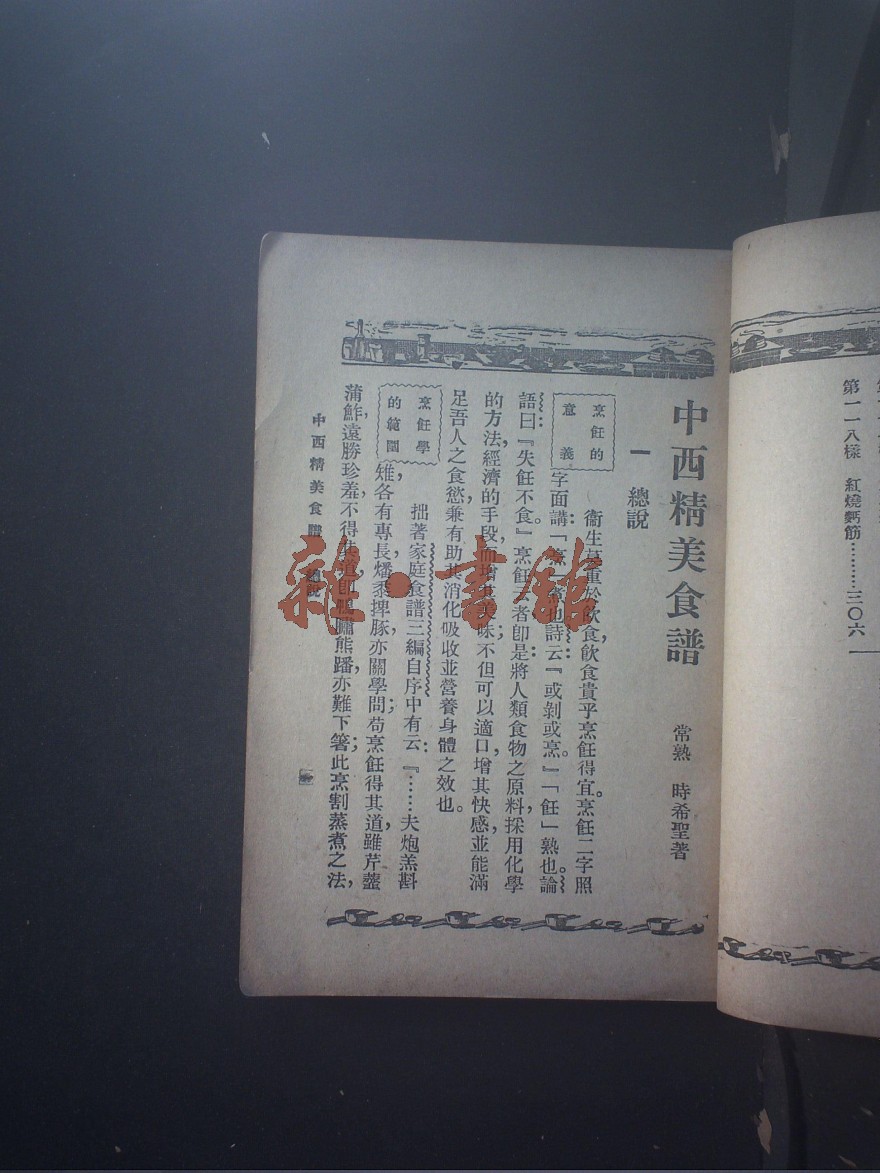 第一一八樣　紅燒麪筋………三〇六
中西精美食譜
常熟　時希聖著
一　總說
烹飪的意義
衞生莫重於飲食，飲食貴乎烹飪得宜。烹飪二字照
字面講：「烹」煮也，詩云：『或剝或烹。』「飪」熟也。論
語曰：『失飪不食』。烹飪者卽是將人類食物之原料，採用化學
的方法，經濟的手段，而增其美味；不但可以適口，增其快感，並能滿
足吾人之食慾，兼有助其消化吸收，並營養身體之效也。
烹飪學的範圍
拙著家庭食譜三編自序中有云：『……夫炮羔斟
雉，各有專長，燔黍捭豚，亦關學問；苟烹飪得其道，雖芹虀
蒲鮓，遠勝珍羞，不得其道，卽鴨臛熊蹯，亦難下箸；此烹割蒸煮之法，
中西精美食譜　總說
一
雜·書館